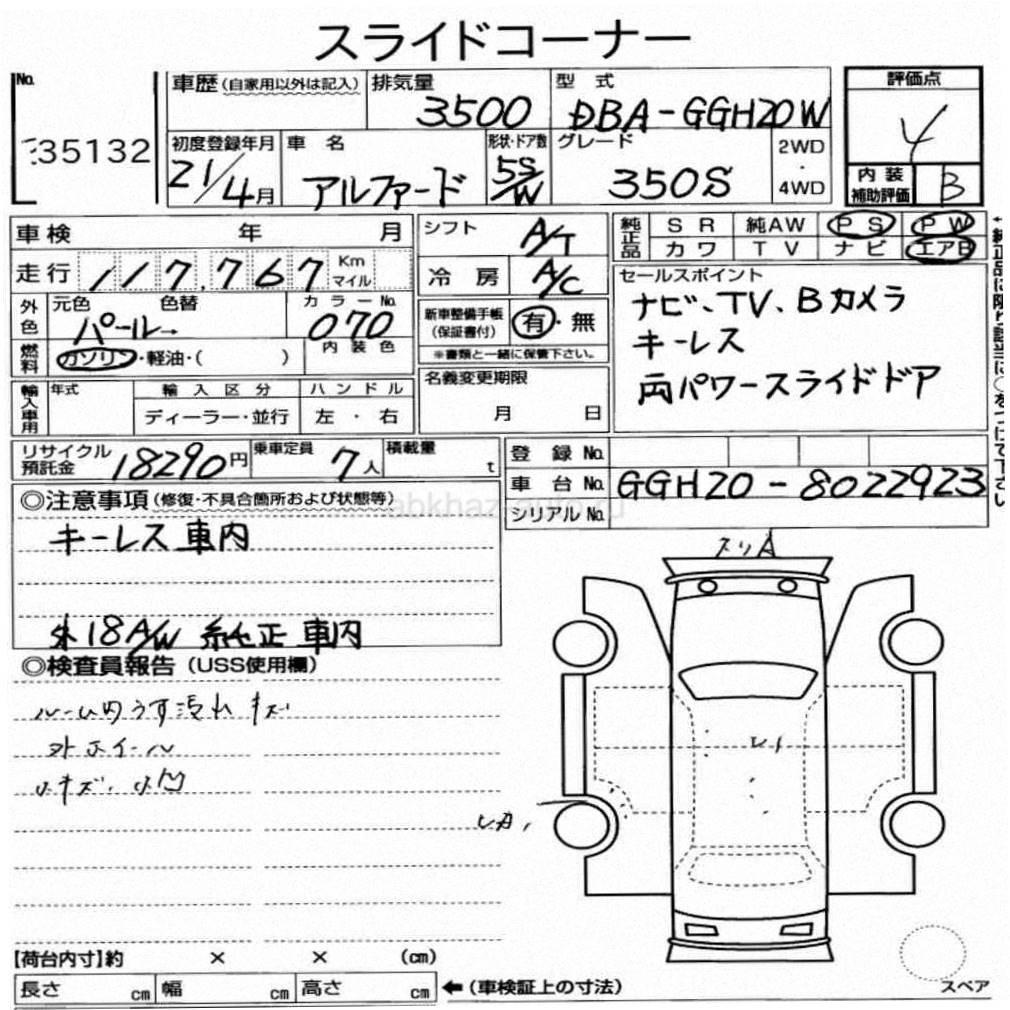 スライドコーナー
No.
35132
車歴(自家用以外は記入)
排気量
3500
型 式
DBA-GGH20W
評価点
4
初度登録年月
21/4月
車 名
アルファード
形状・ドア数
5S/W
グレード
350S
2WD
・
4WD
内装
補助評価
B
車検 年 月
走行 117,767 Km
マイル
シフト
A/T
冷 房
A/C
純正品
S R 純AW P S P W
カワ T V ナビ エアB
←純正品に限り該当に○をつけて下さい
セールスポイント
ナビ、TV、Bカメラ
キーレス
両パワースライドドア
外色
元色 色替
パール→
カラーNo.
070
内装色
燃料
ガソリン・軽油・( )
新車整備手帳
(保証書付)
有・無
※書類と一緒に保管下さい。
輸入車用
年式
輸入区分
ディーラー・並行
ハンドル
左・右
名義変更期限
月 日
リサイクル
預託金
18290円
乗車定員
7人
積載量
t
登 録 No.
車 台 No. GGH20-8022923
シリアルNo.
◎注意事項(修復・不具合箇所および状態等)
abkhaz-auto.ru
キーレス車内
外18A/W 純正車内
◎検査員報告(USS使用欄)
ルーム内うす汚れ キズ
外ホイール
小キズ、小凹
スリA
【荷台内寸】約 × × (cm)
長さ cm 幅 cm 高さ cm ←(車検証上の寸法)
スペア